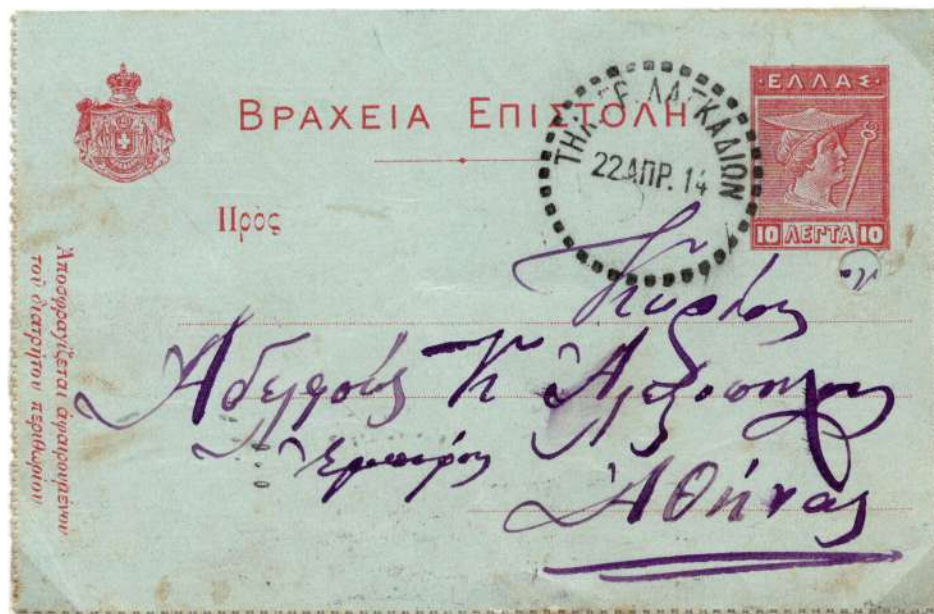 ΒΡΑΧΕΙΑ ΕΠΙΣΤΟΛΗ
ΕΛΛΑΣ
10 ΛΕΠΤΑ 10
ΛΑΓΚΑΔΙΩΝ
22 ΑΠΡ. 14
Πρὸς
Κυρίους
Ἀδελφούς Κ Ἀλεξοπούλους
Ἐμπόρους
Ἀθήνας
Ἀποσφραγίζεται ἀφαιρουμένου
τοῦ διατρήτου περιθωρίου